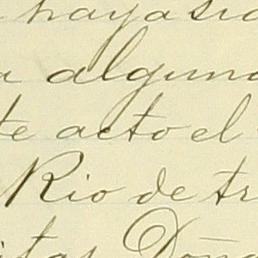 haya sid
a alguna
te acto el
Rio de tr
itas Doña